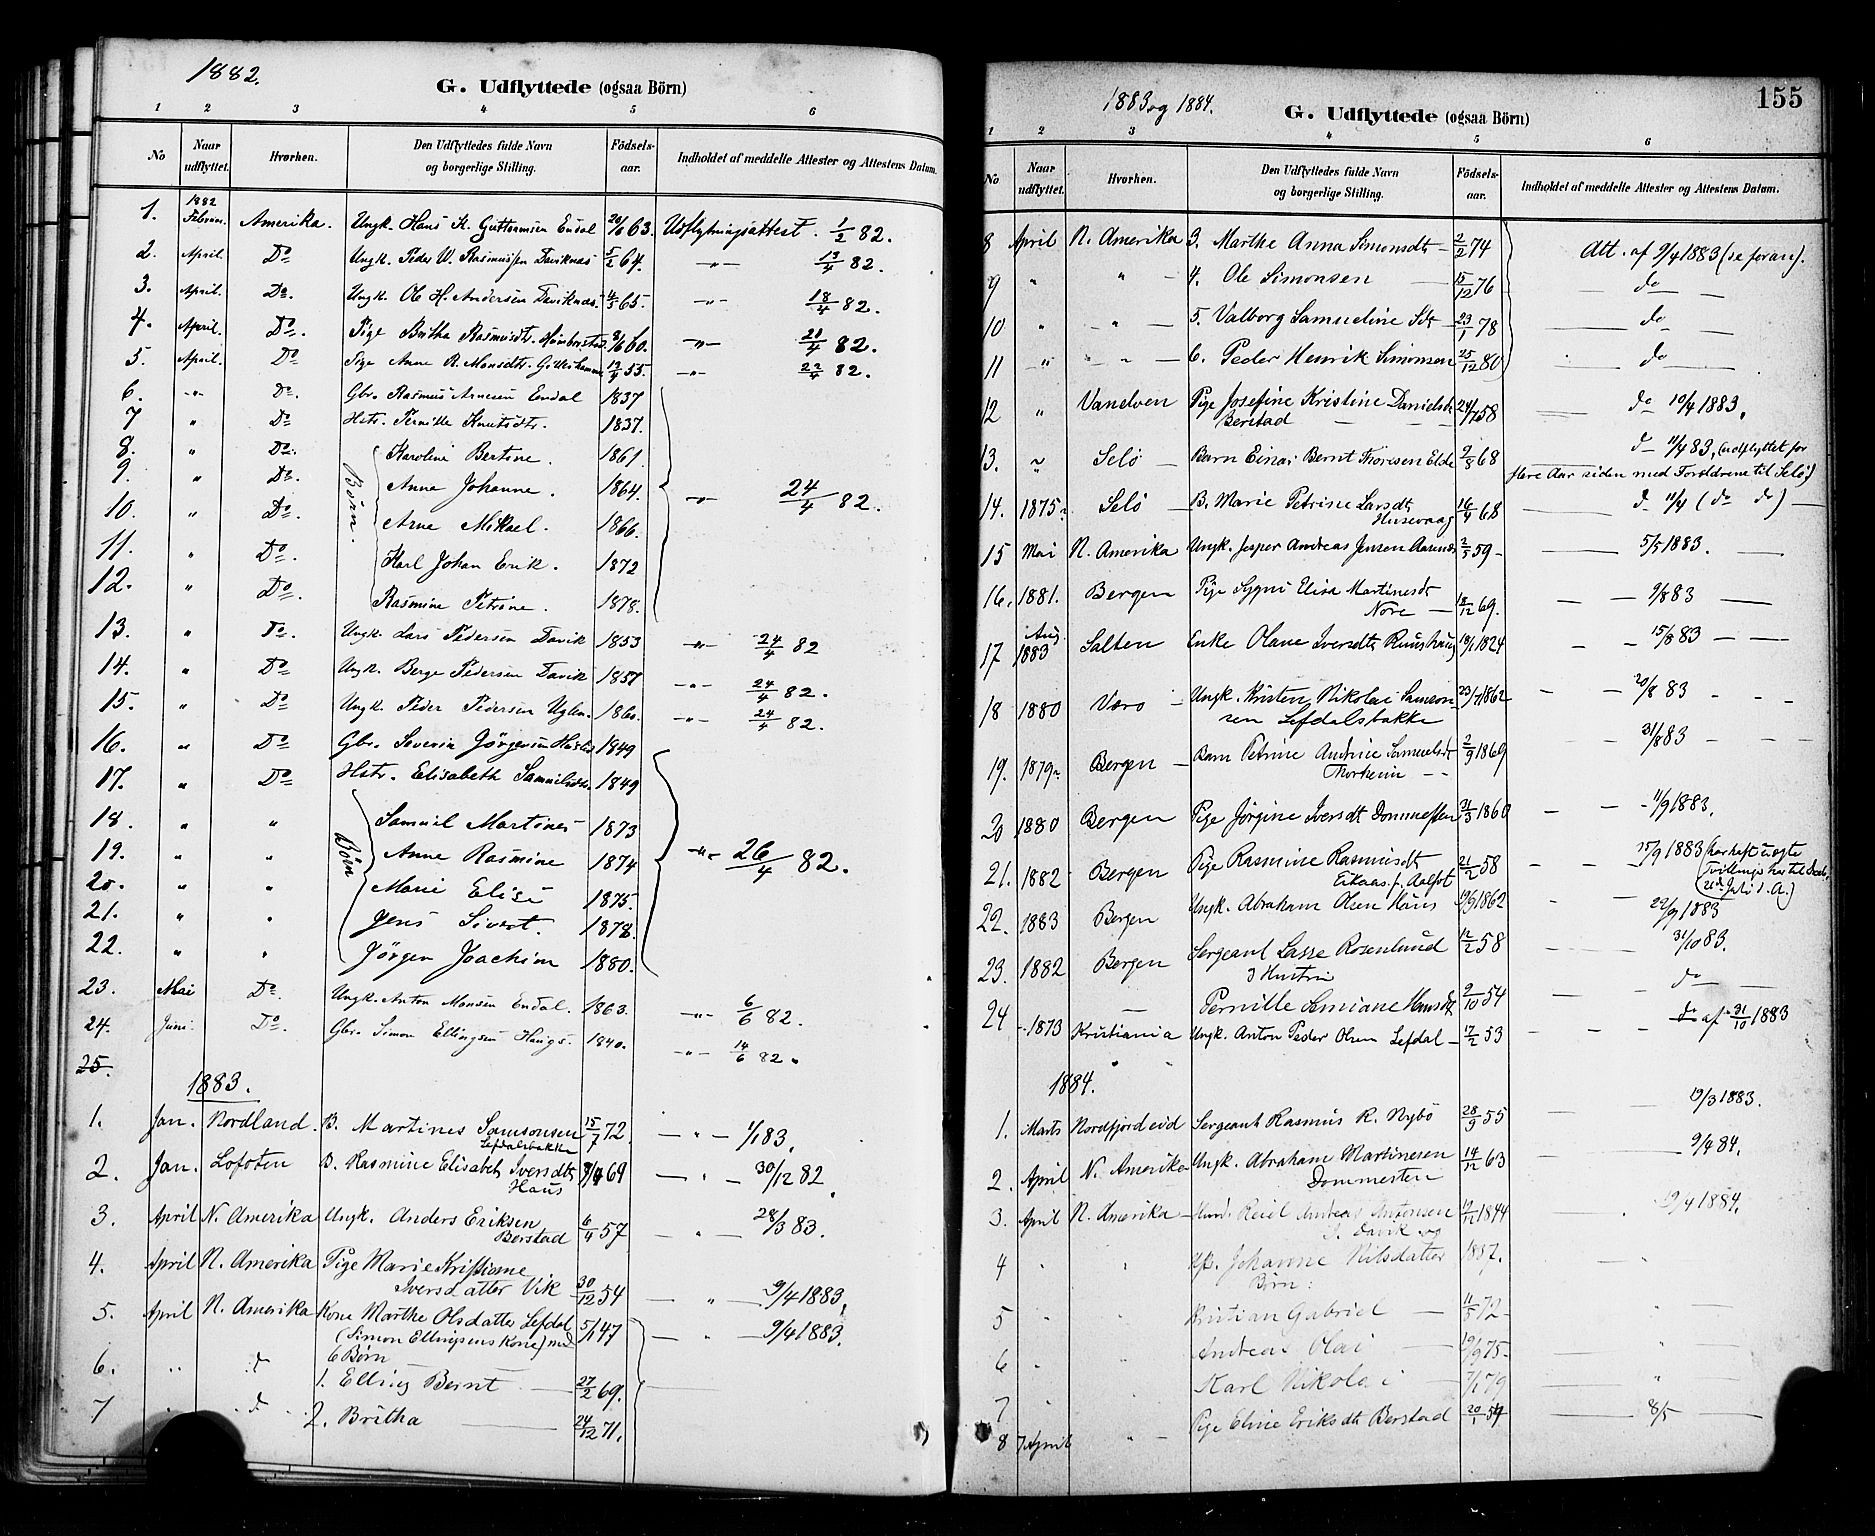 1882.
G. Udflyttede (ogsaa Börn)
1 2 3 4 5 6
No Naar udflyttet. Hvorhen. Den Udflyttedes fulde Navn og borgerlige Stilling. Födsels-aar. Indholdet af meddelte Attester og Attestens Datum.
1. 1882 Februar. Amerika. Ungk. Hans K. Guttormsen Endal 20/6 63. Udflytningsattest. 1/2 82.
2. April. Do Ungk. Peder W. Rasmussen Daviknæs 5/2 64. -"- 13/4 82.
3. April. Do. Ungk. Ole H. Andersen Daviknæs. 65. -"- 18/4 82.
4. April. Do. Pige Britha Rasmusdtr. 60. -"- 21/4 82.
5. April. Do Pige Anne R. Monsdtr. 55. -"- 22/4 82.
6. -"- Do. Gbr. Rasmus Arnesen Endal 1837
7 " Do Hstr. Pernille Knutsdtr. 1837.
8. " Do. Börn. Karoline Bertine. 1861.
9. " Do. Anne Johanne. 1864. -"- 24/4 82.
10. " Do. Arne Mikael. 1866.
11. " Do. Karl Johan Erik. 1872
12. " Do. Rasmine Petrine. 1878.
13. " Do. Ungk. Lars Pedersen Davik 1853 -"- 24/4 82
14. " Do Ungk. Berge Pedersen Davik 1857 -"- 24/4 82.
15. " Do Ungk. Peder Pedersen 1860. -"- 24/4 82.
16. " Do Gbr. Severin Jörgensen 1849
17. " Do Hstr. Elisabeth Samuelsdtr. 1849
18. " " Börn Samuel Martines 1873
19. " " Anne Rasmine 1874 -"- 26/4 82.
20. " " Marie Elise 1875.
21. " " Jens Sivert. 1878.
22. " " Jörgen Joachim 1880.
23. Mai Do. Ungk. Anton Monsen Endal. 1863. -"- 6/6 82.
24. Juni. Do. Gbr. Simon Ellingsen Haugs. 1840. -"- 14/6 82.
25.
1883.
1. Jan. Nordland. B. Martines Samsonsen 15/7 72. — " — 1/1 83.
Lefdalsbakke
2. Jan. Lofoten B. Rasmine Elisabeth Iversdtr 69 — " — 30/12 82.
Haus
3. April N. Amerika Ungk. Anders Eriksen
Berstad 6/4 57 — " — 28/3 83.
4. April N. Amerika Pige Marie Kristiane
Iversdatter Vik 30/12 54 — " — 9/4 1883.
5. April N. Amerika Kone Marthe Olsdatter Lefdal 5/1 47 — " — 9/4 1883.
(Simon Ellingsens Kone) med
6 Børn
6. " d 1. Elling Bernt 27/2 69.
7 " d 2. Britha 24/12 71.
155
1883 og 1884.
G. Udflyttede (ogsaa Börn)
1 2 3 4 5 6
No Naar udflyttet. Hvorhen. Den Udflyttedes fulde Navn og borgerlige Stilling. Födsels-aar. Indholdet af meddelte Attester og Attestens Datum.
8 April N. Amerika 3. Marthe Anna Simonsdtr 2/2 74 Att. af 9/4 1883 (se foran).
9 " " 4. Ole Simonsen 15/12 76 do
10 " " 5. Valborg Samueline Sdtr 23/1 78 do
11 " " 6. Peder Henrik Simonsen 25/12 80 do
12 " Vanelven Pige Josefine Kristine Danielsdtr 58 do 10/4 1883.
Berstad
13. " Selö Barn Einar Bernt Thoresen Elde 9/8 68 d 11/4 83, (udflyttet for
flere Aar siden med Forældrene til Selö)
14. 1875 Selö B. Marie Petrine Larsdtr 16/4 68 d 11/4 (do do)
Husevaag
15 Mai N. Amerika Ungk. Jesper Andreas Jensen 59 5/5 1883.
16. 1881. Bergen Pige Elisa Martinesdtr
Nore 18/12 69. 9/8 83
17 Aug. 1883 Salten Enke Olane Iversdtr 1824 15/8 83
18 1880 Værö Ungk. Kristen Nikolai Samson 23/7 1862 20/8 83
sen Lefdalsbakke
19. 1879 Bergen Barn Petrine Andrine Samuelsdtr 2/9 1869 31/8 83
20 1880 Bergen Pige Jörgine Iversdt 31/3 1860 11/9 1883.
21. 1882 Bergen Pige Rasmine Rasmusdt 21/2 58 15/9 1883 (har havt uægte
Eikaas p. Aalfot
22. 1883 Bergen Ungk. Abraham Olsen Haus 1862 22/9 1883
23. 1882 Bergen Sergeant Lasse Rosenlund 12/2 58 31/10 83.
Hustru
Pernille 9/10 54 do
24 1873 Kristiania Ungk. Anton Peder Olsen Lefdal 17/2 53 do af 31/10 1883
1884.
1. Marts Nordfjordeid Sergeant Rasmus R. Nybö 28/9 55 19/3 1883.
2. April N. Amerika Ungk. Abraham Martinesen 14/12 63 9/4 84.
Dommesten
3. April N. Amerika Reiel Andreas Antonsen 1844 19/4 1884.
Davik og
4 " " Johanne Nilsdatter 1857.
Börn:
5 Kristian Gabriel 72
6 " " Andreas Olai 75
7 " Karl Nikolai 79
8 7 April " Pige Eline Eriksdtr Berstad 8/5